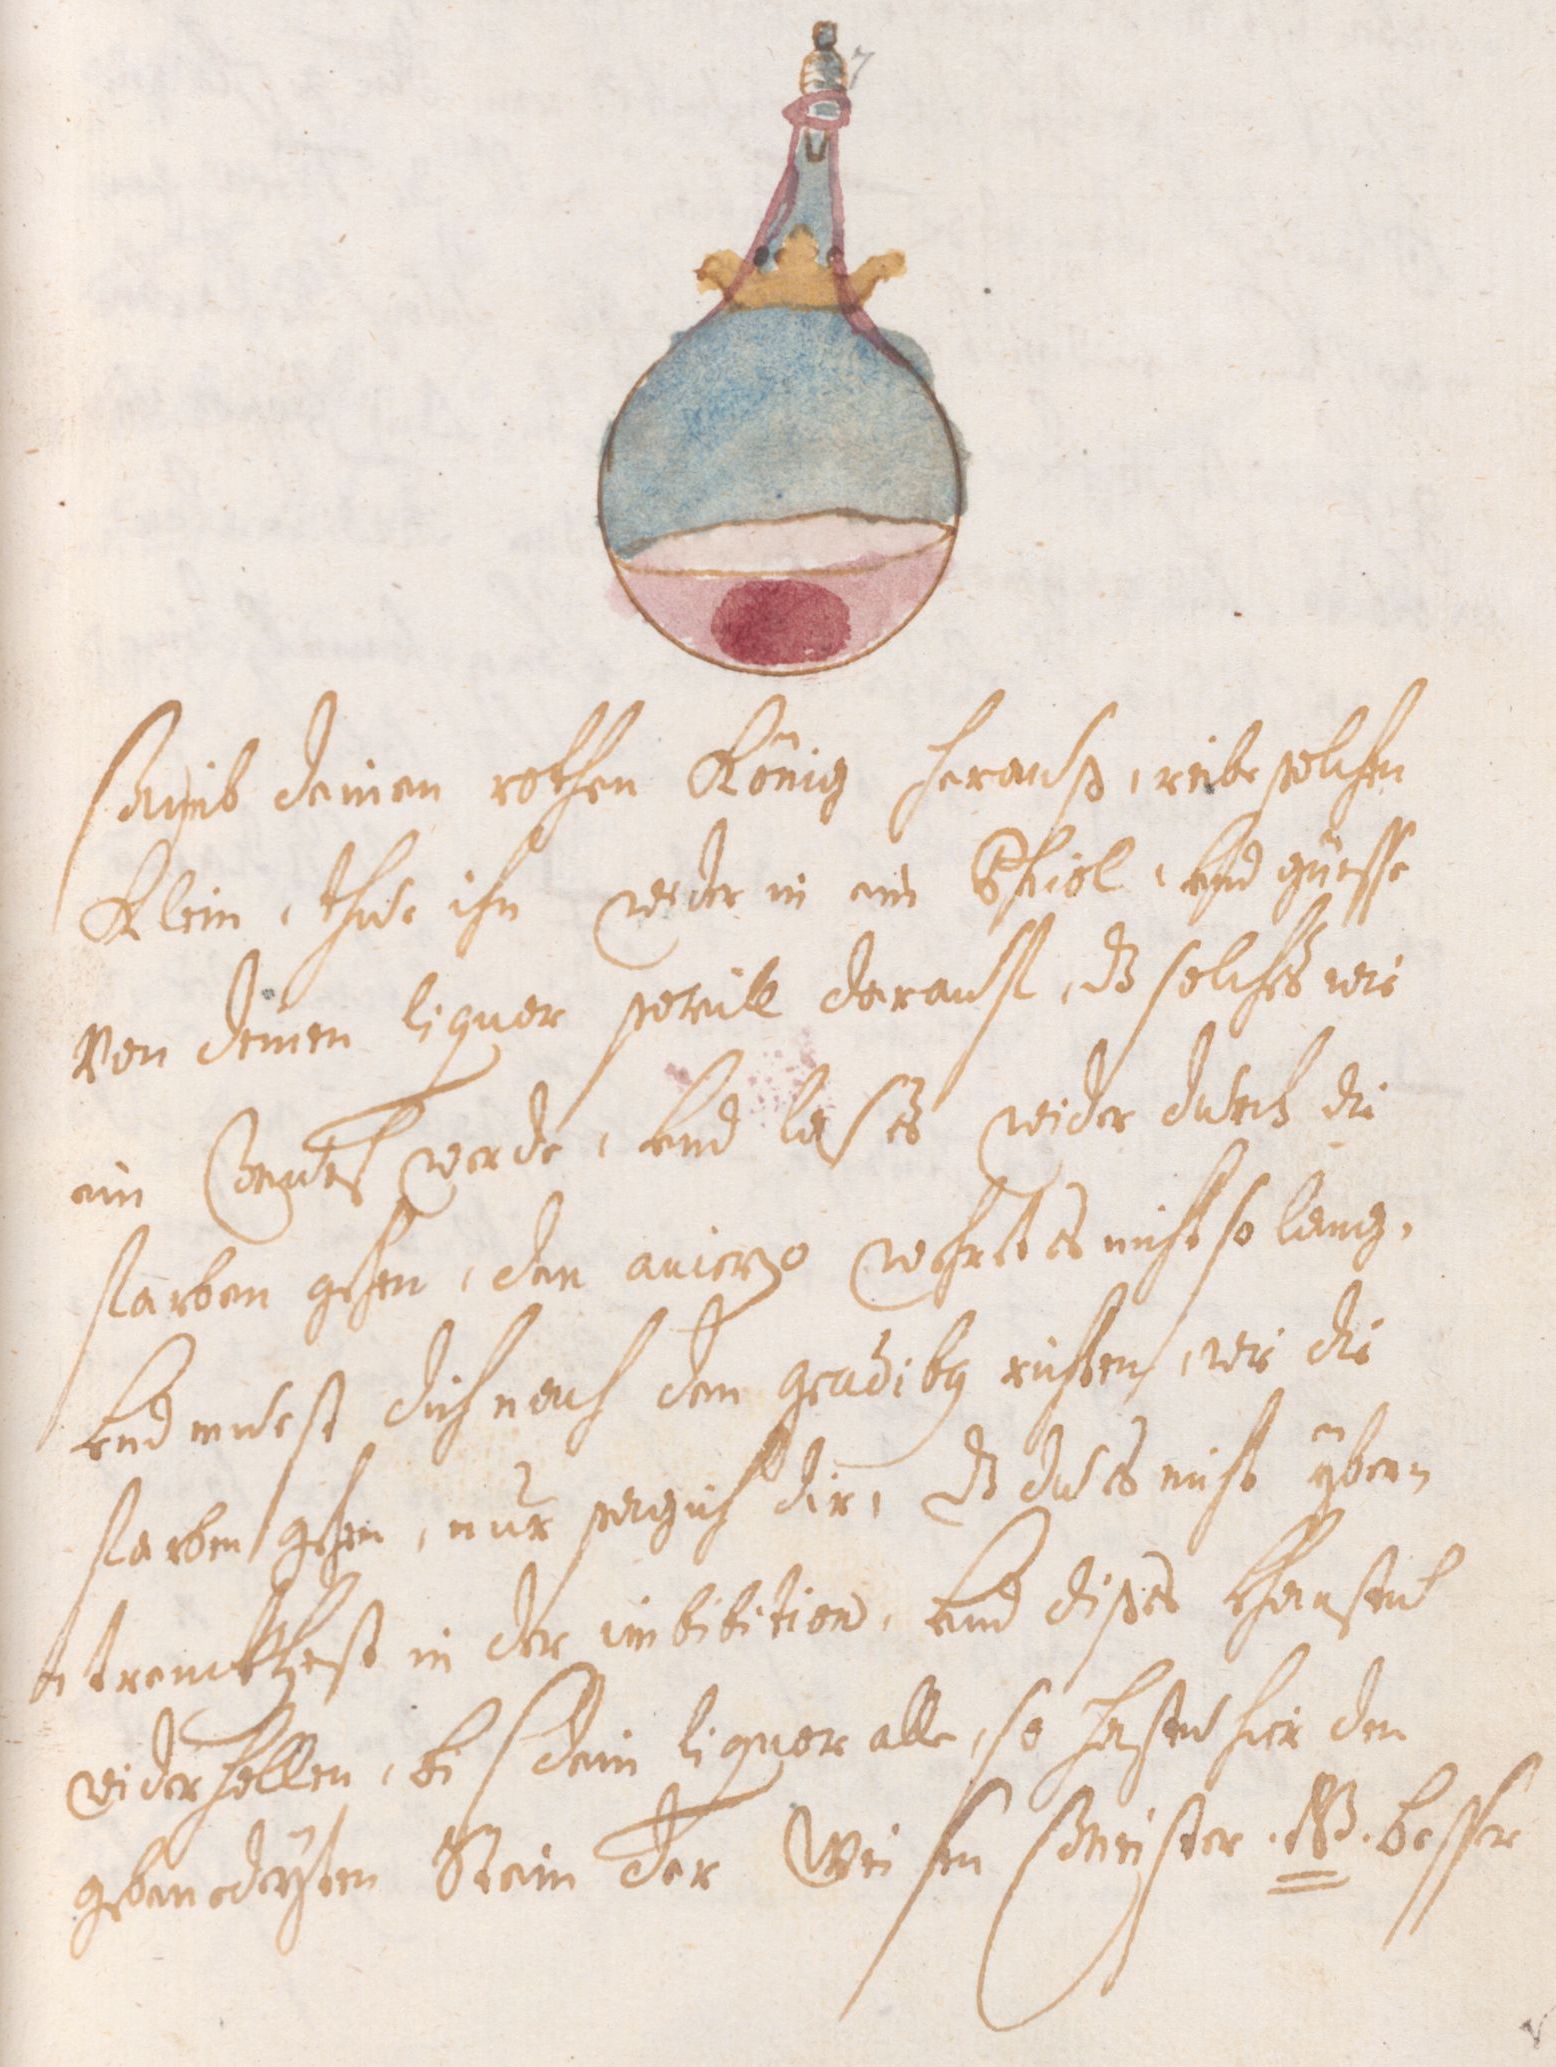 7
deinen rothen König herauß, reibe solchen
Klein, thue ihn wider in ein Phiol, vnd güesse
Von deinen liquor sovill darauff, dz solches wie
ein werde, vnd laß es wider durch die
farben gehen, den aniezo wehrt es nicht so lang,
vnd muest dich nach den gradibq richten, wie die
farben gehen, nur sag ich dir, dz du es nicht über-
trenckhest in der imbibition, vnd dises
widerhollen, bis dein liquor alle, so hastu hir den
gebenedeyten Stein der Weisen Meister. NB. besser